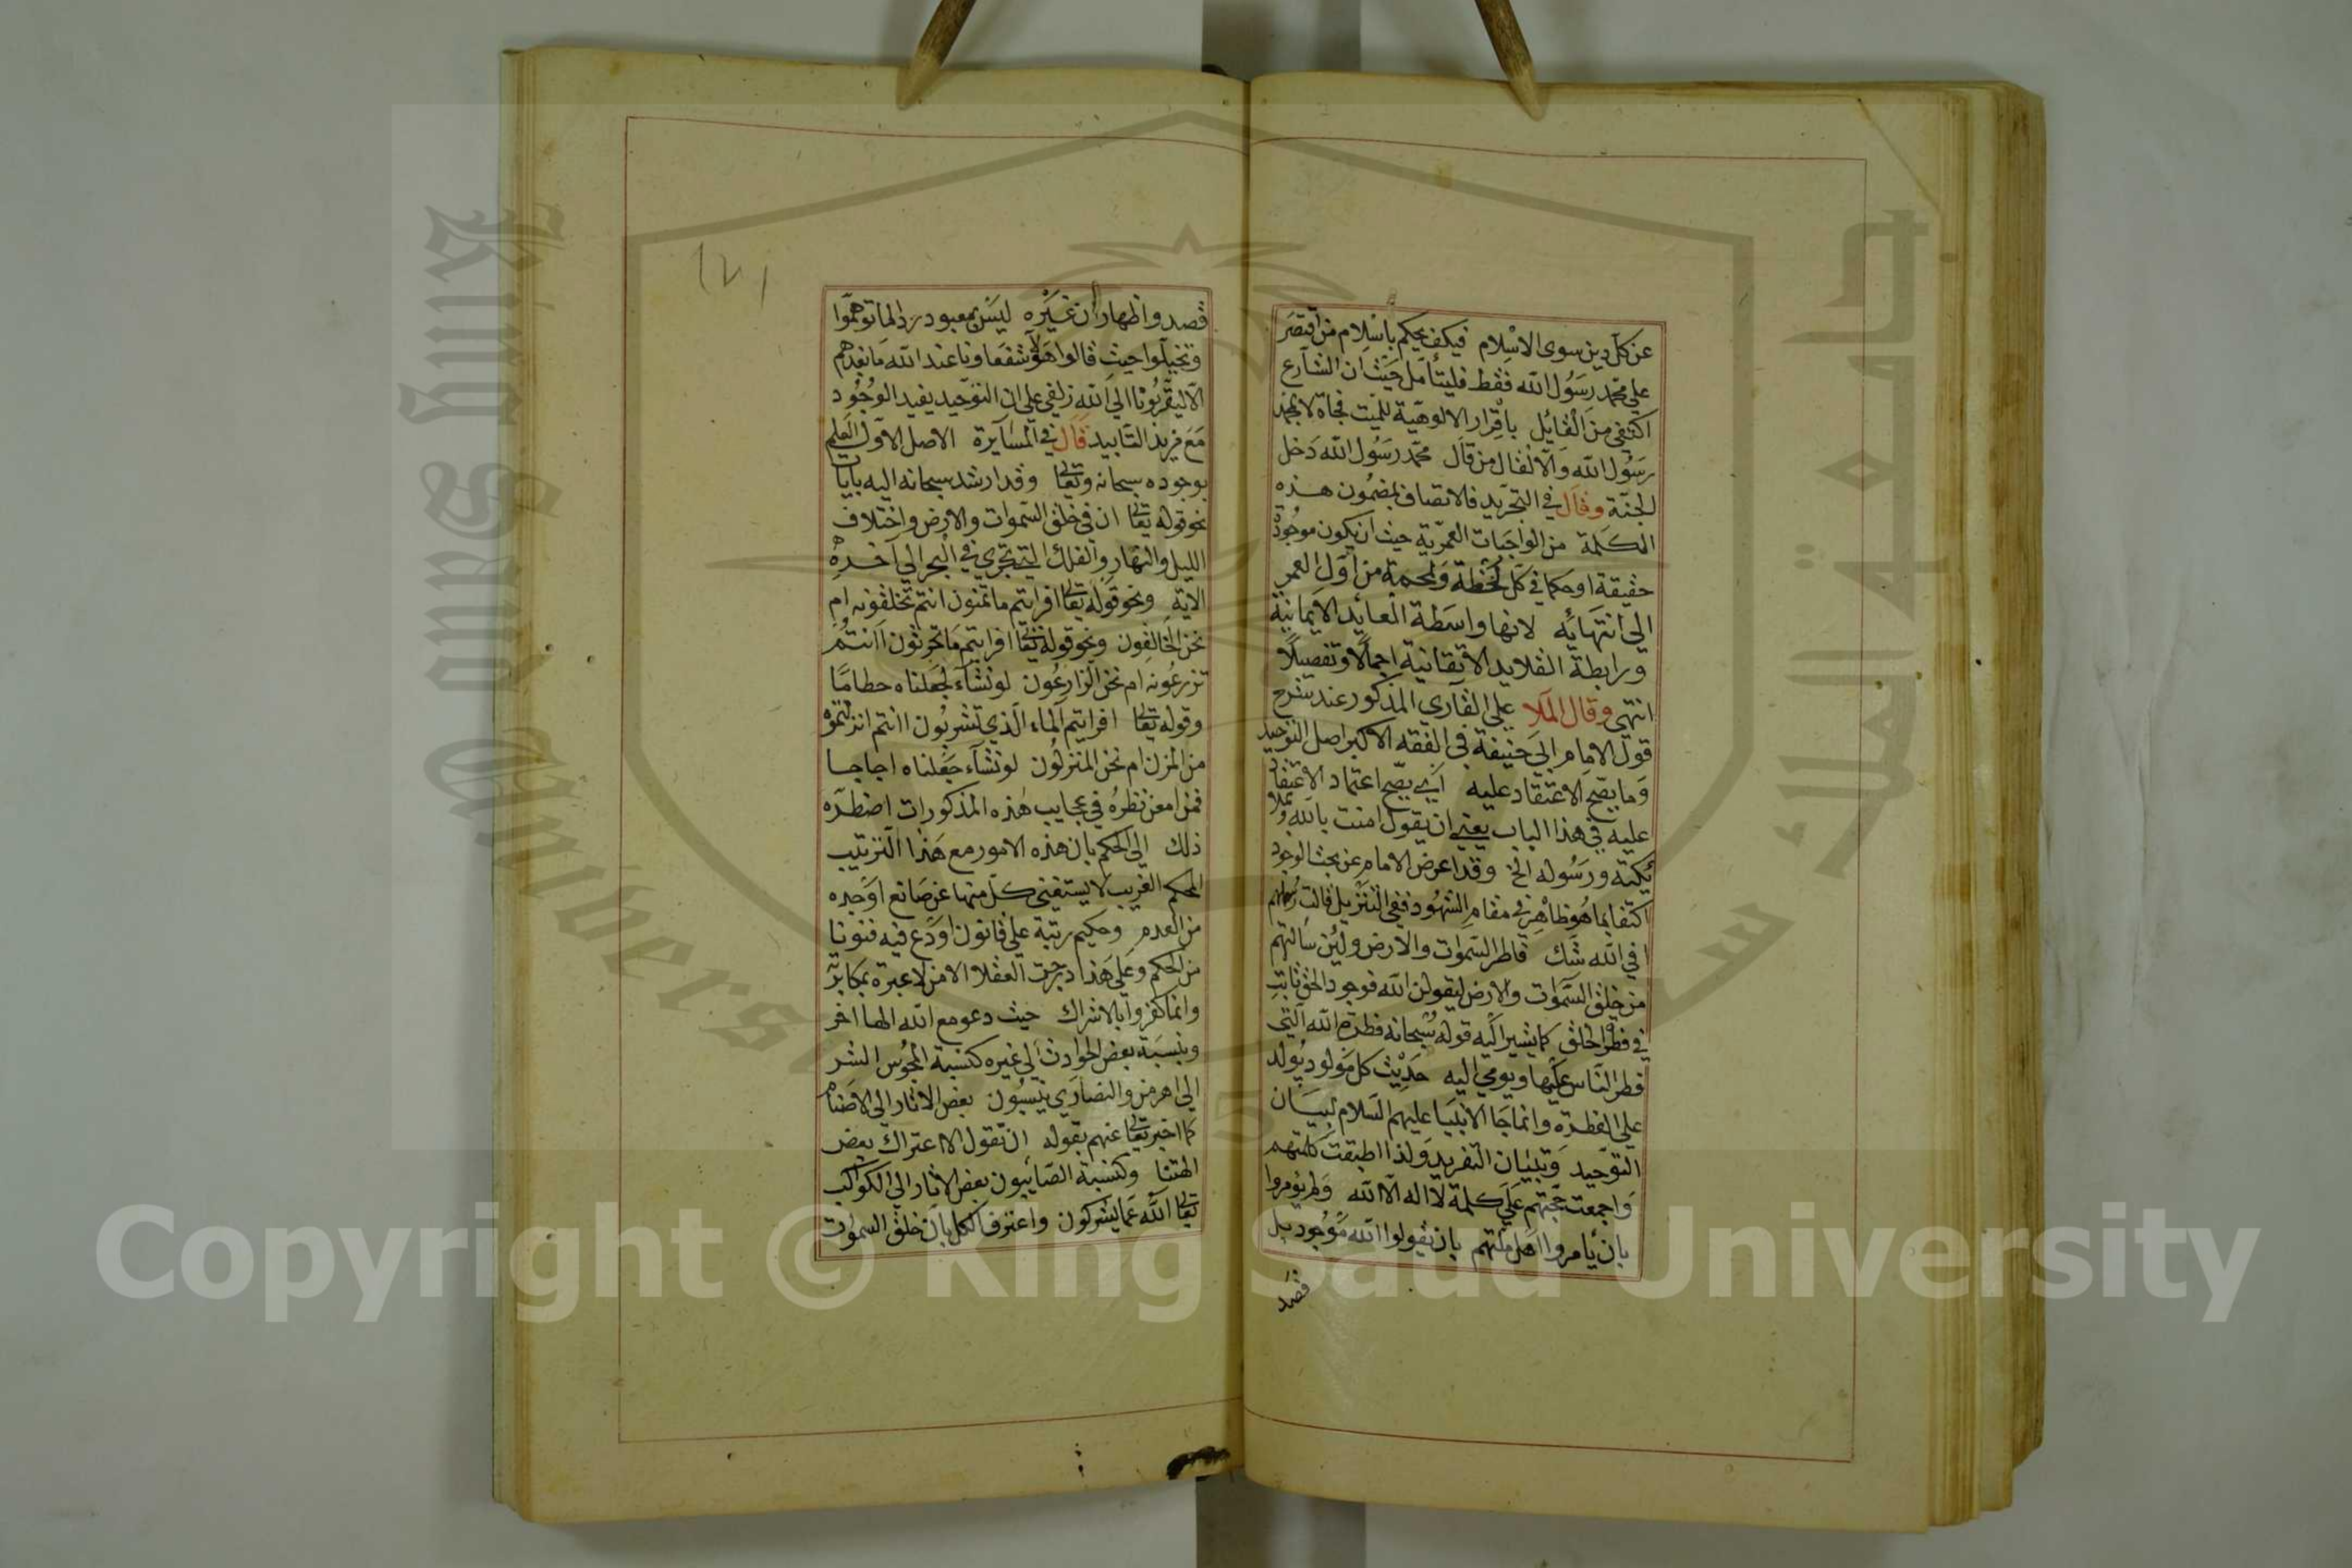 عن كل دين سوى الاسلام فيكف يحكم باسلام من اقتصر
على محمد رسول الله فقط فليتأمل حيث ان الشارع
اكتفى من القايل باقرار الالوهية للميت فجاة لا بمحمد
رسول الله والا لقال من قال محمد رسول الله دخل
الجنة وقال في التجريد فالاتصاف بمضمون هذه
الكلمة من الواجبات العمرية حيث ان يكون موجودة
حقيقة او حكما في كل لحظة ولمحة من اول العمر
الى انتهائه لانها واسطة العقائد الايمانية
ورابطة القلايد الاتقانية اجمالا وتفصيلا
انتهى وقال الملا على القاري المذكور عند شرح
قول الامام ابى حنيفة في الفقه الاكبر اصل التوحيد
وما يصح الاعتقاد عليه اى يصح اعتماد الاعتقاد
عليه في هذا الباب يعنى ان يقول امنت بالله وملا
ئكته ورسوله الخ وقد اعرض الامام عن بحث الوجود
اكتفا بما هو ظاهر في مقام الشهود ففى التنزيل قالت رسلهم
افي الله شك فاطر السموات والارض ولئن سالتهم
من خلق السموات والارض ليقولن الله فوجود الحق ثابت
في فطر الخلق كما يشير اليه قوله سبحانه فطرة الله التى
فطر الناس عليها ويومي اليه حديث كل مولود يولد
على الفطرة وانما جا الانبيا عليهم السلام لبيان
التوحيد وتبيان التفريد ولذا اطبقت كلمتهم
واجمعت حجتهم على كلمة لا اله الا الله ولم يؤمروا
بان يأمروا اهل ملتهم بان يقولوا الله موجود بل
قصد
قصدوا ظهار ان غيره ليس بمعبود رد لما توهموا
وتخيلوا حيث قالوا هؤلا شفعاونا عند الله ما نعبدهم
الا ليقربونا الى الله زلفى على ان التوحيد يفيد الوجود
مع مزيد التابيد قال في المسآيرة الاصل الاول العلم
بوجوده سبحانه وتعالى وقد ارشد سبحانه اليه بايات
نحو قوله تعالى ان في خلق السموات والارض واختلاف
الليل والنهار والفلك التى تجري في البحر الى آخره
الاية ونحو قوله تعالى افرايتم ما تمنون انتم تخلقونه ام
نحن الخالقون ونحو قوله تعالى افرايتم ما تحرثون اانتم
تزرعونه ام نحن الزارعون لو نشآء لجعلناه حطاما
وقوله تعالى افرايتم الماء الذي تشربون اانتم انزلتموه
من المزن ام نحن المنزلون لو نشآء جعلناه اجاجا
فمن امعن نظره في عجايب هذه المذكورات اضطره
ذلك الى الحكم بان هذه الامور مع هذا الترتيب
المحكم الغريب لا يستغنى كل منها عن صانع اوجده
من العدم وحكيم رتبة على قانون اودع فيه فنونا
من الحكم وعلى هذا درجت العقلا الا من لا عبرة بمكابرته
وانما كفروا بالاشراك حيث دعو مع الله الها اخر
وبنسبة بعض الحوادث الى غيره كنسبة المجوس الشر
الى اهرمن والنصارى ينسبون بعض الاثار الى الاصنام
كما اخبر تعالى عنهم بقوله ان نقول الا اعتراك بعض
الهتنا وكنسبة الصابيون بعض الاثار الى الكواكب
تعالى الله عما يشركون واعترف الكل بان خلق السموات
Copyright © King Saud University
King Saud University
جامعة الملك سعود